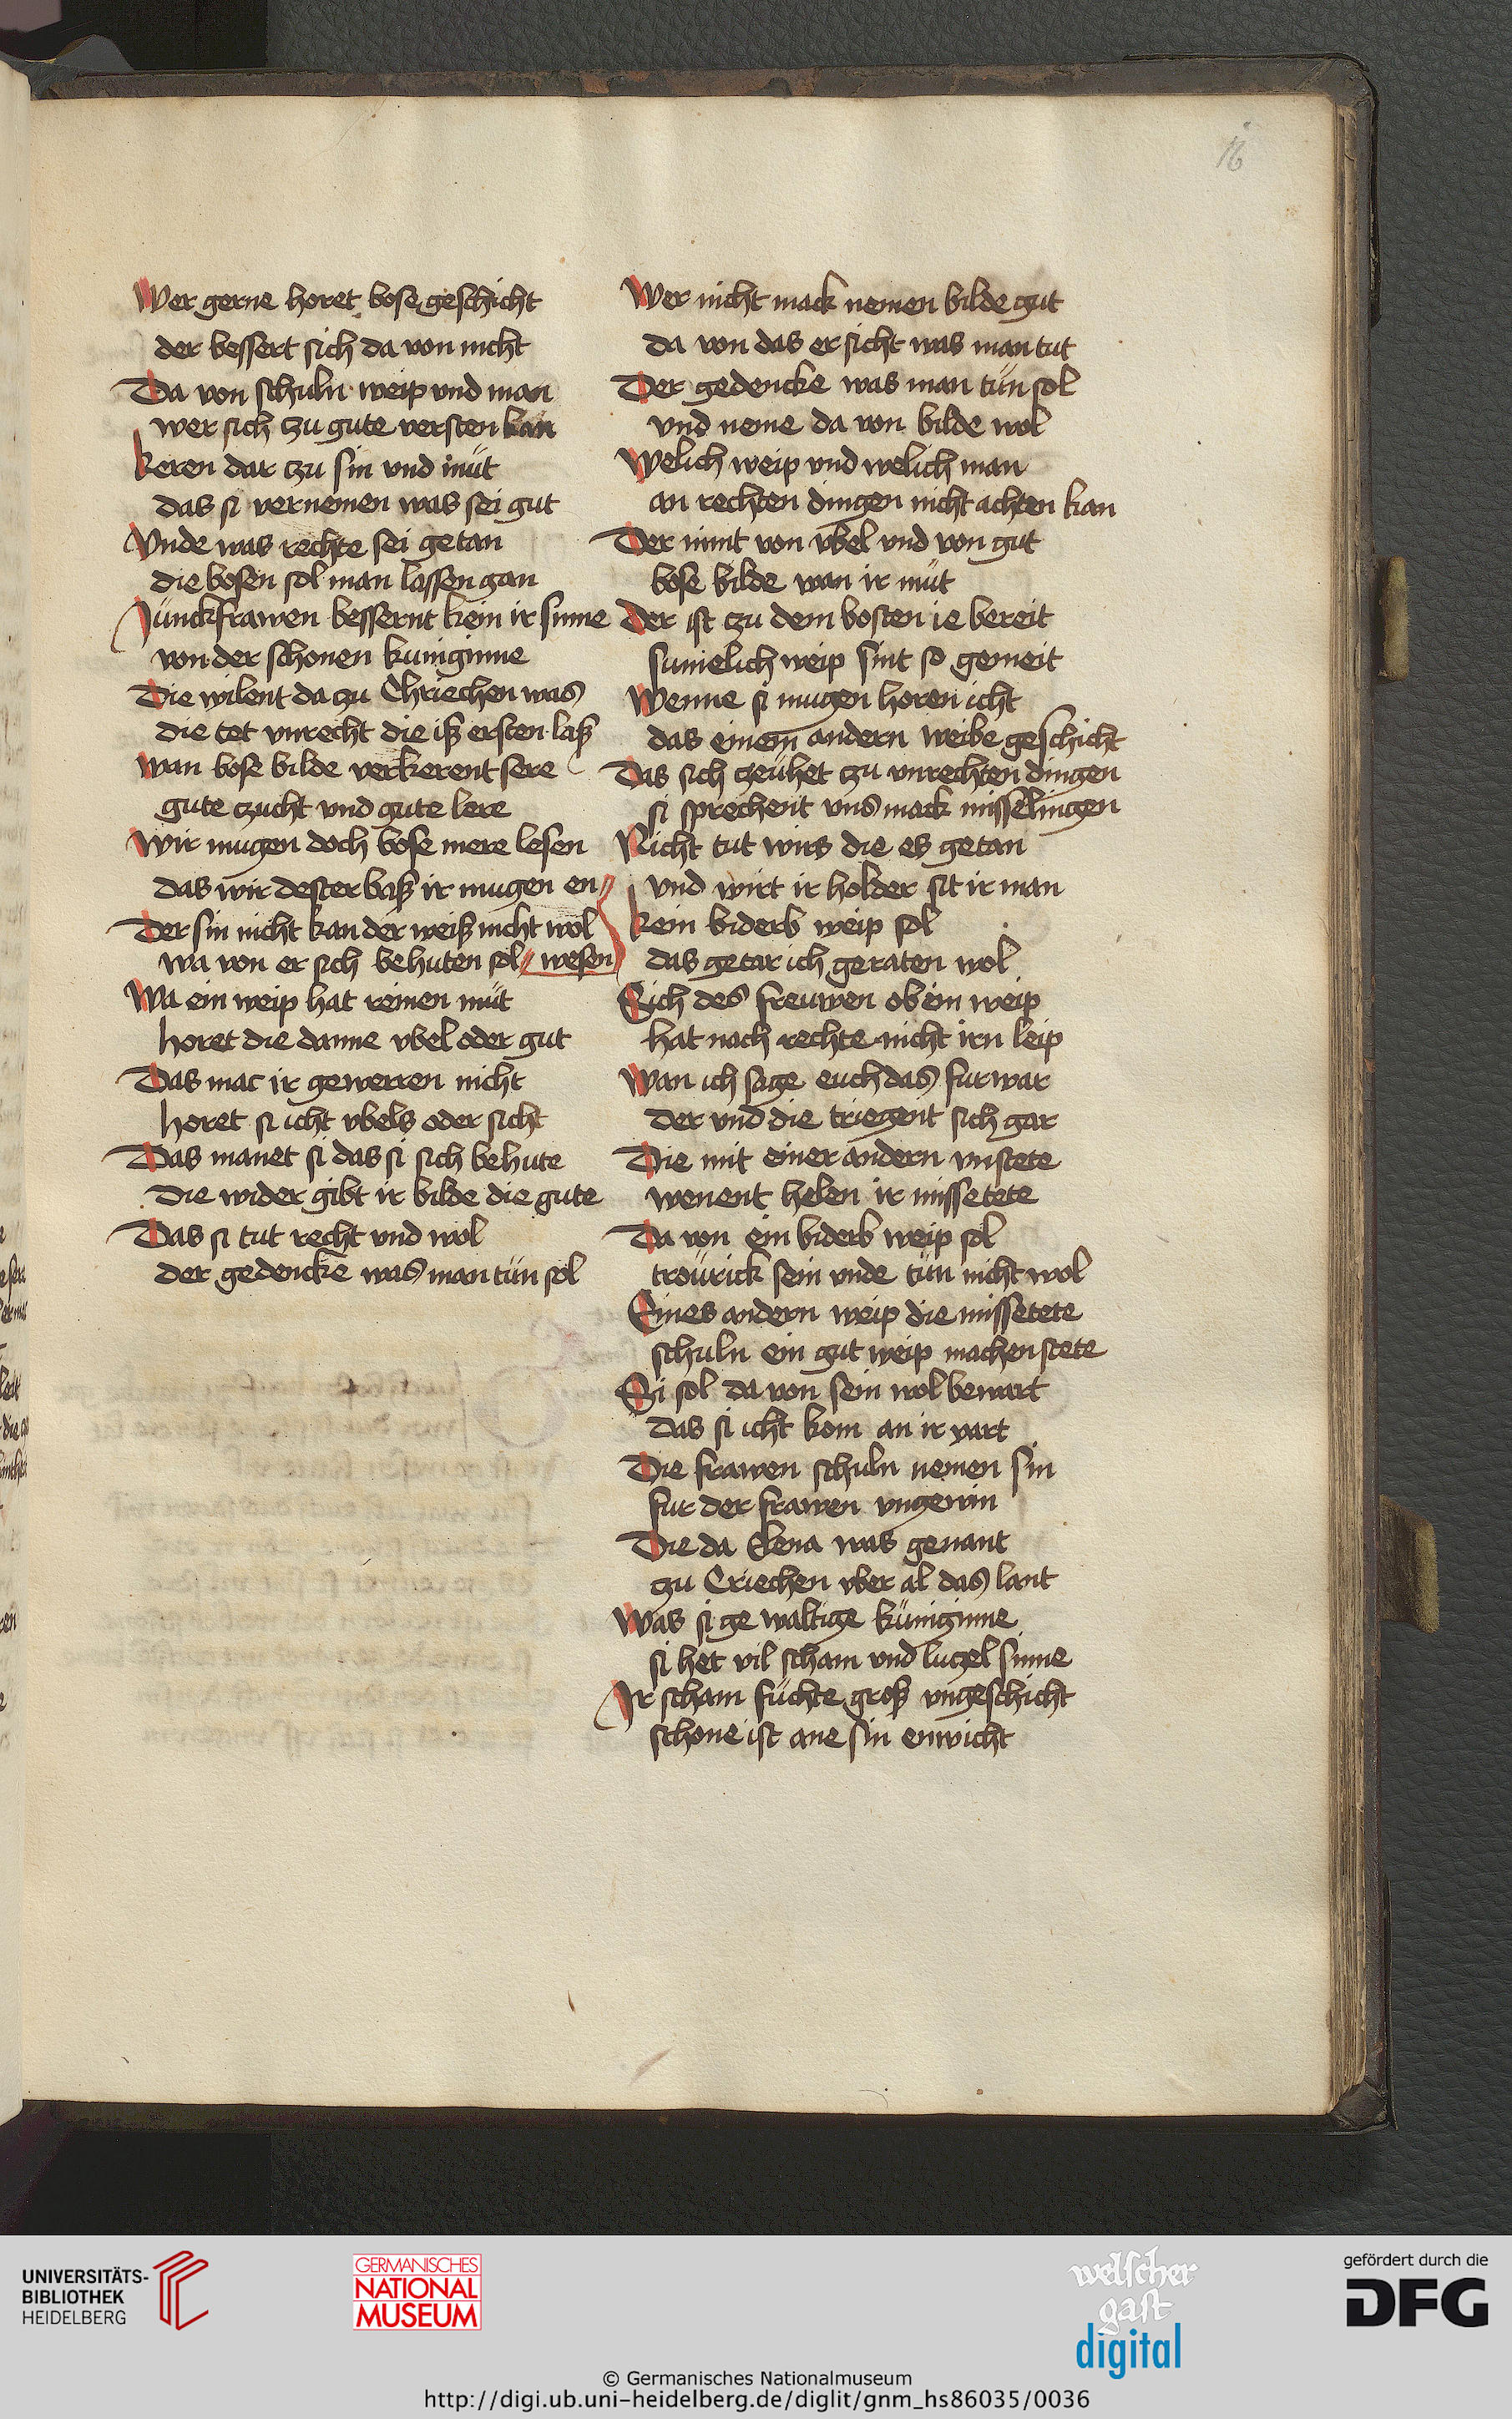 16
Wer gerne horet bose geschicht
der bessert sich da von nicht
Da von schuln weip vnd man
wer sich zu gute versten kan
keren dar zu sin vnd müt
das si vernemen was sei gut
Vnde was rechte sei getan
die bosen sol man lassen gan
Jünckfrawen bessernt kein ir sinne
von der schonen kuniginne
Die wilent da zu Chriechen was
die tet vnrecht die iß ersten laß
wan bose bilde verkerent sere
gute zucht vnd gute lere
wir mugen doch bose mere lesen
das wir dester baß ir mugen en//
Der sin nicht kan der weiß nicht wol
wa von er sich behuten sol // wesen
Wa ein weip hat reinen müt
horet die danne vbel oder gut
Das mac ir gewerren nicht
horet si icht vbels oder sicht
Das manet si das si sich behute
die wider gibt ir bilde die gute
Das si tut recht vnd wol
der gedencke was man tün sol
Wer nicht mack nemen bilde gut
da von das er sicht was man tut
Der gedencke was man tün sol
vnd neme da von bilde wol
Welich weip vnd welich man
an rechten dingen nicht achten kan
Der nimt von vbel vnd von gut
bose bilde wan ir müt
Der ist zu dem bosten ie bereit
sumelich weip sint so gemeit
Wenne si mugen horen icht
das einem andern weibe geschicht
Das sich zeühet zu vnrechten dingen
si sprechent vns mack misselingen
Nicht tut wirs die es getan
vnd wirt ir holder sit ir man
kein biderb weip sol
das getar ich geraten wol
Sich des freuwen ob ein weip
hat nach rechte nicht irn leip
Wan ich sage euch das fur war
der vnd die triegent sich gar
Die mit einer andern vnstete
wenent helen ir missetete
Da von ein biderb weip sol
troürick sein vnde tün nicht wol
Eines andern weip die missetete
schuln ein gut weip machen stete
Si sol da von sein wol bewart
das si icht kom an ir vart
Die frawen schuln nemen sin
fur der frawen vngewin
Die da Elena was genant
zu Criechen vber al das lant
Was si ge waltige küniginne
si het vil scham vnd luczel sinne
Ir scham füchte groß vngeschicht
schone ist ane sin enwicht
UNIVERSITÄTS-
BIBLIOTHEK
HEIDELBERG
GERMANISCHES
NATIONAL
MUSEUM
welscher
gast
digital
gefördert durch die
DFG
© Germanisches Nationalmuseum
http://digi.ub.uni-heidelberg.de/diglit/gnm_hs86035/0036